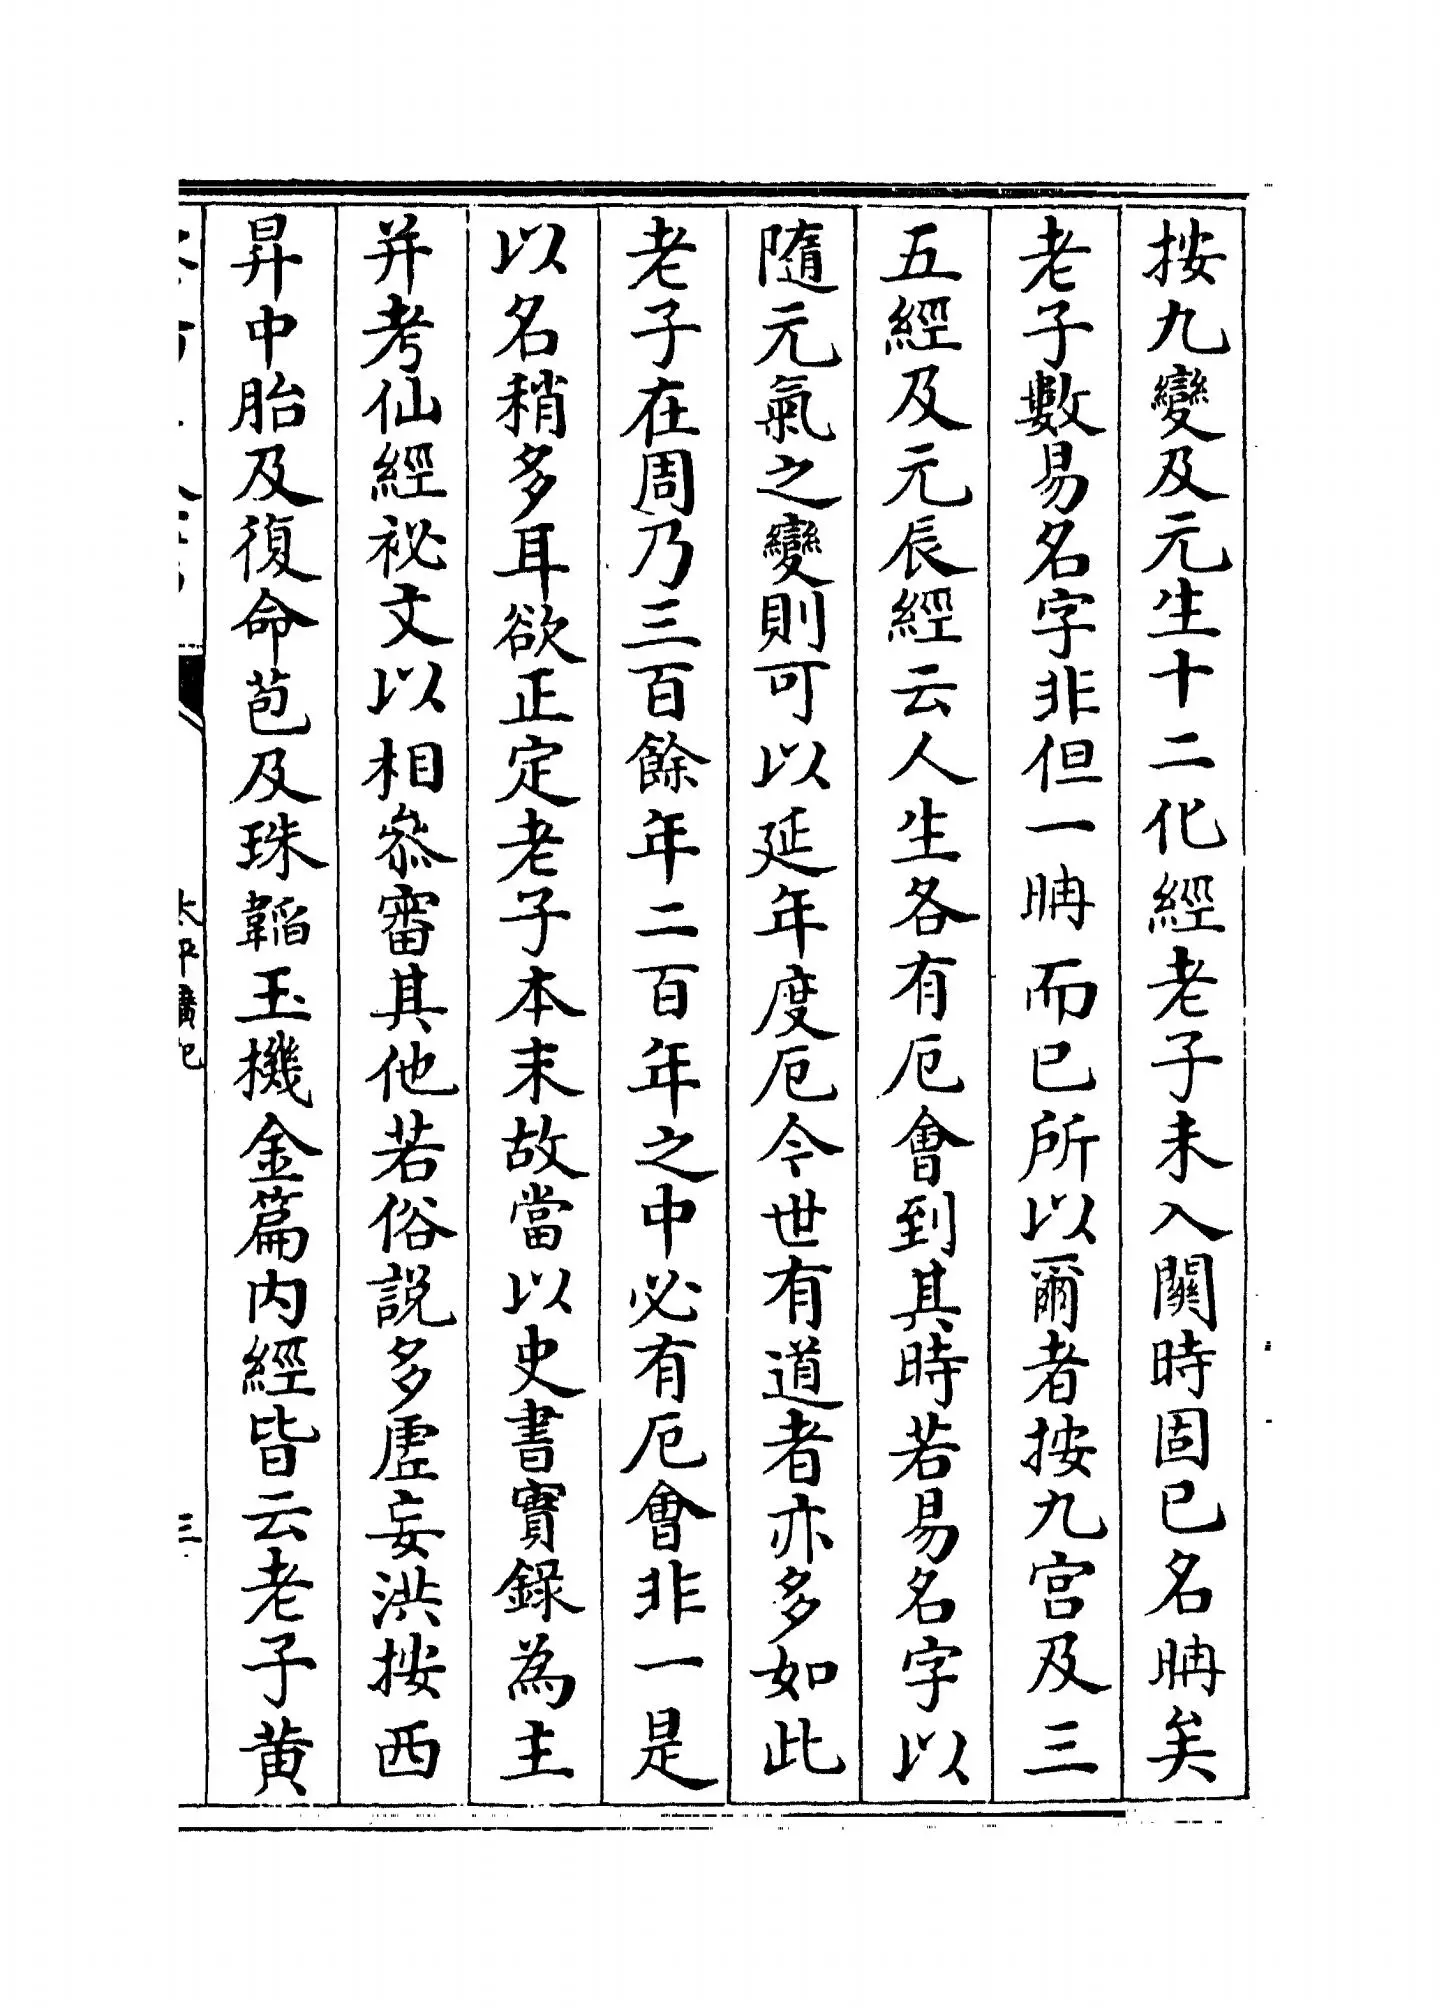 按九變及元生十二化經老子未入關時固已名𥅆矣
老子數易名字非但一𥅆而已所以爾者按九宮及三
五經及元辰經云人生各有厄會到其時若易名字以
隨元氣之變則可以延年度厄今世有道者亦多如此
老子在周乃三百餘年二百年之中必有厄會非一是
以名稍多耳欲正定老子本末故當以史書實錄為主
并考仙經祕文以相叅審其他若俗說多虛妄洪按西
昇中胎及復命苞及珠韜玉機金篇内經皆云老子黄
太平廣記
三